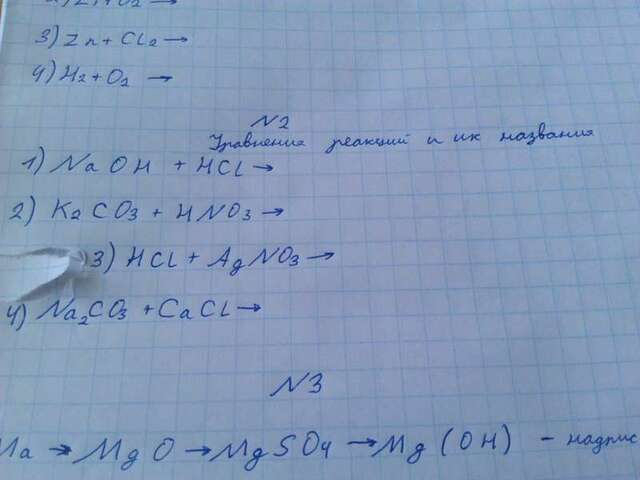 3) Zn + Cl₂ →
4) H₂ + O₂ →
N2
Уравнения реакций и их названия
1) NaOH + HCl →
2) K₂CO₃ + HNO₃ →
3) HCl + AgNO₃ →
4) Na₂CO₃ + CaCl →
N3
→ MgO → MgSO₄ → Mg(OH) –